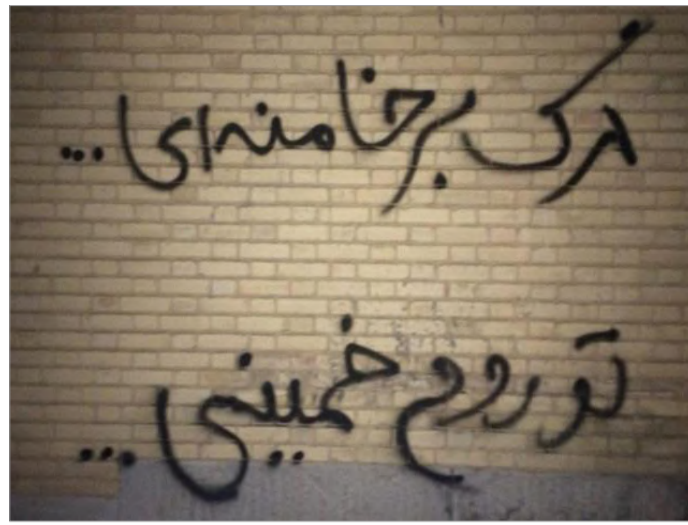 مرگ بر خامنه‌ای ...
تو روح خمینی ...